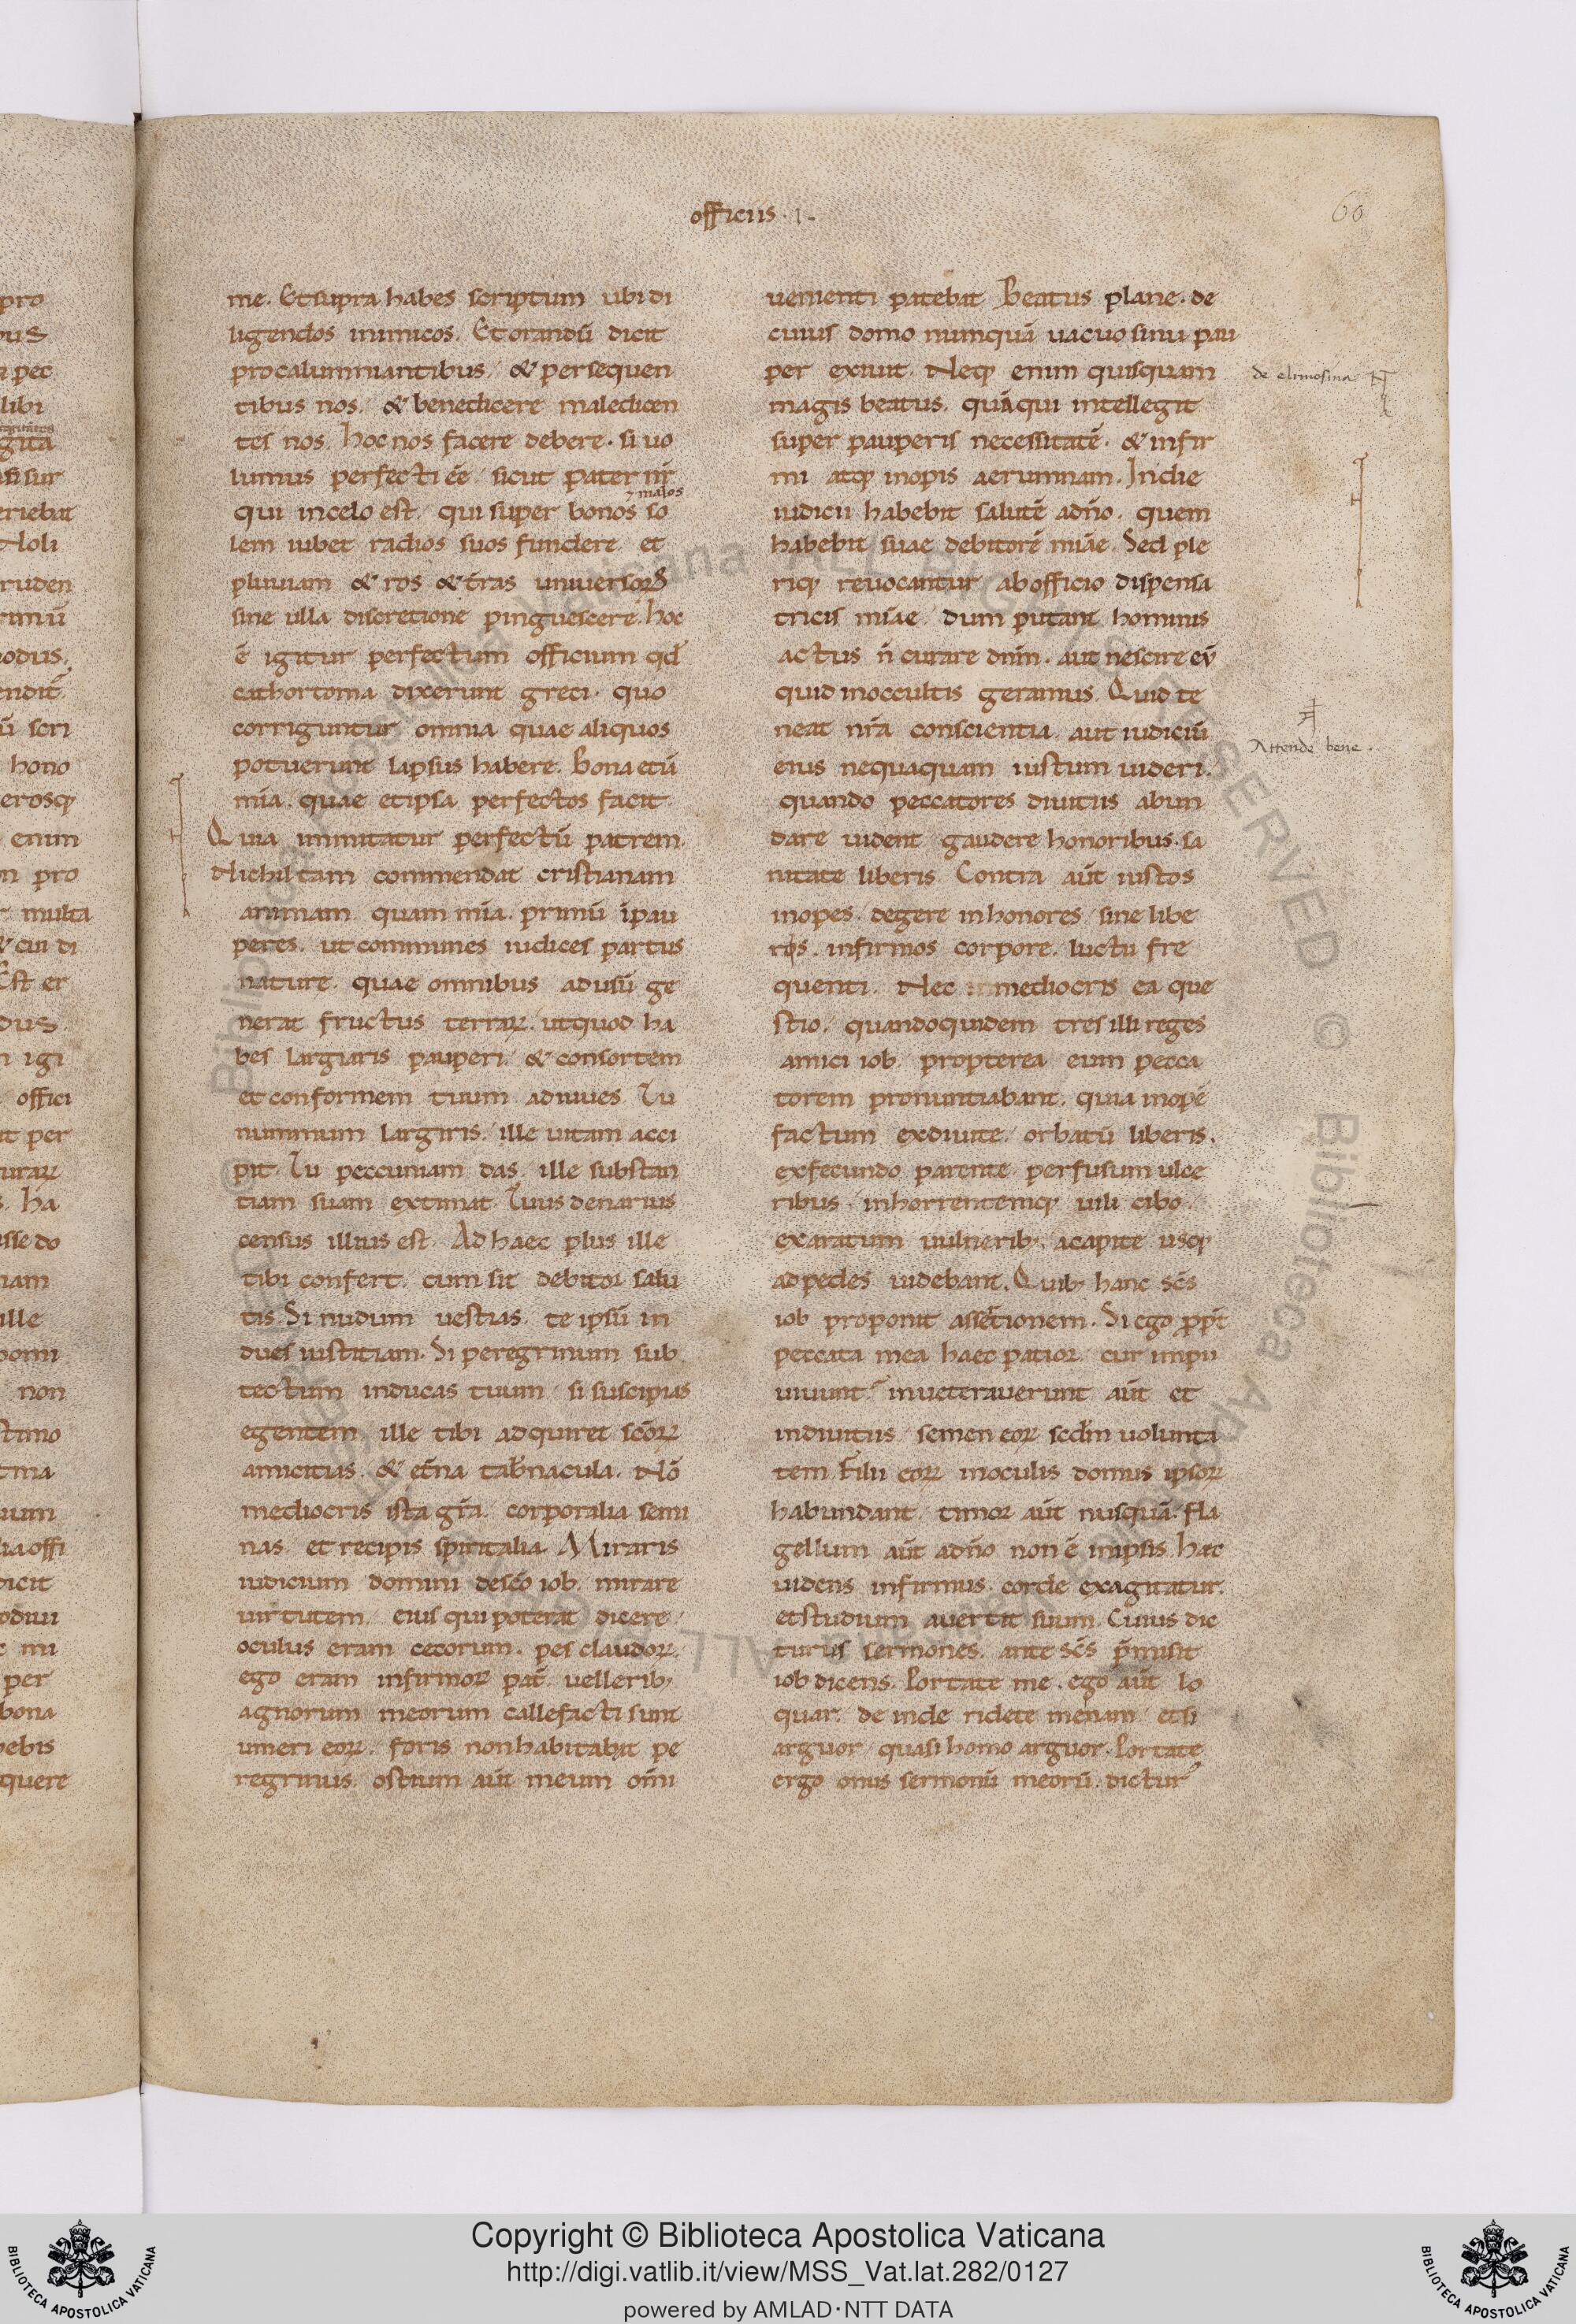 officiis · I -
60
me. Et supra habes scriptum ubi di
ligendos inimicos. Et orandū dicit
pro calumniantibus. & persequen
tibus nos. & benedicere maledicen
tes nos. hoc nos facere debere. si uo
lumus perfecti ēē. sicut pater nr̄
⁊ malos
qui in celo est. qui super bonos so
lem iubet radios suos fundere. et
pluuiam & ros & tr̄as uniuersoꝝ
sine ulla discretione pinguescere. hoc
ē igitur perfectum officium qd̄
cathortoma dixerunt greci. quo
corriguntur omnia quae aliquos
potuerunt lapsus habere. Bona etiā
mīa. quae et ipsa perfectos facit.
Quia immitatur perfectū patrem.
Nichil tam commendat cristianam
animam quam mīa. primū ī pau
peres. ut communes iudices partus
nature. quae omnibus ad usū ge
nerat fructus terraꝝ. ut quod ha
bes largiaris pauperi. & consortem
et conformem tuum adiuues. Tu
nummum largiris. ille uitam acci
pit. Tu peccuniam das. ille substan
tiam suam extimat. Tuus denarius
census illius est. Ad haec plus ille
tibi confert. cum sit debitor salu
tis. Si nudum uestias. te ipsū in
dues iustitiam. Si peregrinum sub
tectum inducas tuum. si suscipias
egentem. ille tibi adquiret scōꝝ
amicitias. & et̄na tab̄nacula. Nō
mediocris ista gr̄a. corporalia semi
nas. et recipis spiritalia. Miraris
iudicium domini de scō iob. mirare
uirtutem. eius qui poterat dicere.
oculus eram cecorum. pes claudoꝝ.
ego eram infirmoꝝ pat̄. uellerib;
agnorum meorum callefacti sunt
umeri eoꝝ. foris non habitabat pe
regrinus. ostium aūt meum om̄i
uenienti patebat. Beatus plane. de
cuius domo numquā uacuo sinu pau
per exiuit. Neqꝫ enim quisquam
magis beatus. quā qui intellegit
super pauperis necessitatē. & infir
mi atqꝫ inopis aerumnam. In die
iudicii habebit salutē a dn̄o. quem
habebit suae debitorē mīae. Sed ple
riqꝫ reuocantur ab officio dispensa
tricis mīae. dum putant hominis
actus n̄ curare dnm̄. aut nescire eū
quid in occultis geramus. Quid te
neat nr̄a conscientia. aut iudiciū
eius nequaquam iustum uideri.
quando peccatores diuitiis abun
dare uident. gaudere honoribus. sa
nitate liberis. Contra aūt iustos
inopes. degere inhonores. sine libe
ros. infirmos corpore. luctu fre
quenti. Nec mediocris ea que
stio. quandoquidem tres illi reges
amici iob. propterea eum pecca
torem pronuntiabant. quia inopē
factum ex diuite. orbatū liberis.
ex fecundo parente. perfusum ulce
ribus. inhorrentemqꝫ uili cibo.
exaratum uulnerib;. a capite usqꝫ
ad pedes uidebant. Quib; hanc scs̄
iob proponit assertionem. Si ego pp̄t
peccata mea haec patior. cur impii
uiuunt. inueterauerunt aūt et
in diuitiis. semen eoꝝ scdm̄ uolunta
tem. Filii eoꝝ in oculis. domus ipsoꝝ
habundant. timor aūt nusquā. Fla
gellum aūt a dn̄o non ē in ipsis. hac
uidens infirmus. corde exagitatur.
et studium auertit suum. Cuius dic
turus sermones. ante scs̄ p̄misit
iob dicens. Portate me. ego aūt lo
quar. de inde ridete me nam. et si
arguor. quasi homo arguor. Portate
ergo onus sermonū meorū. dictur
de elimosina
Attende bene.
Copyright © Biblioteca Apostolica Vaticana
http://digi.vatlib.it/view/MSS_Vat.lat.282/0127
powered by AMLAD·NTT DATA